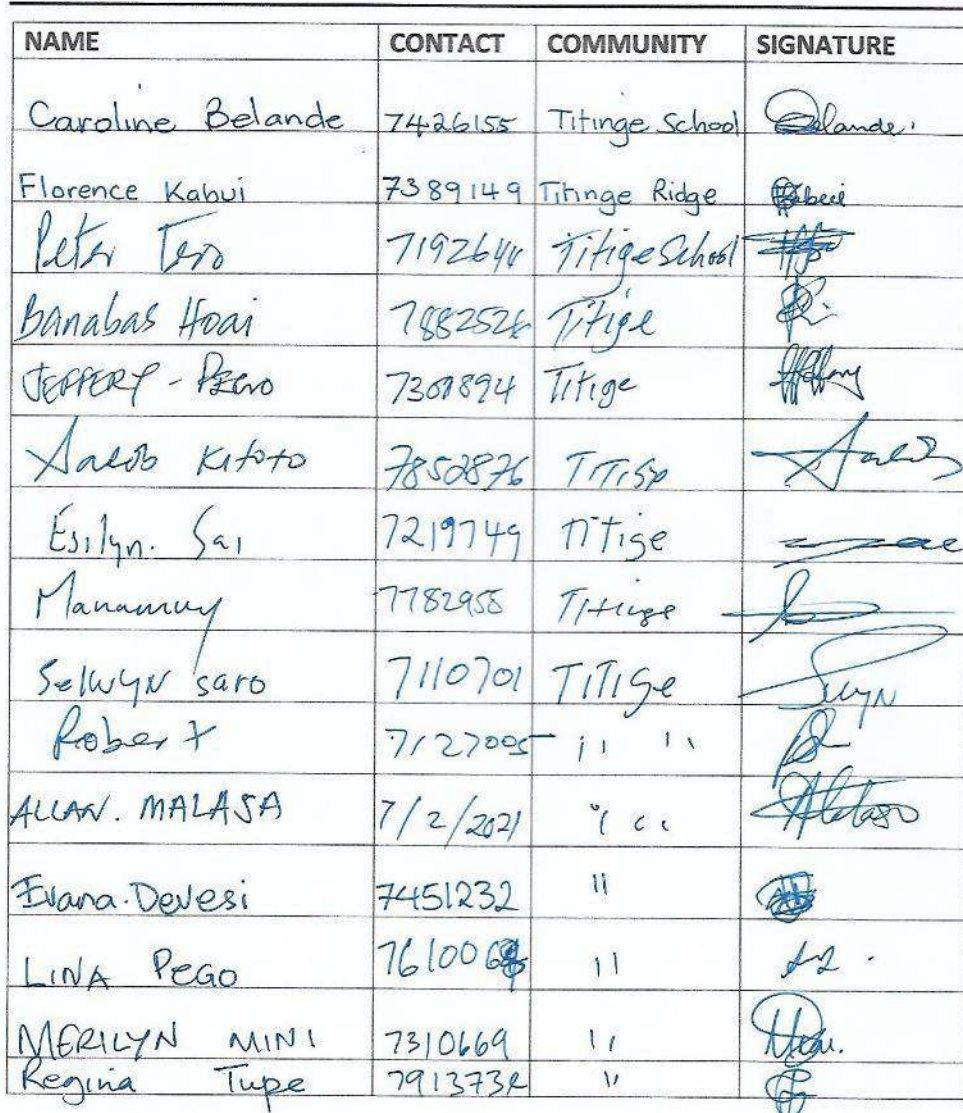 NAME CONTACT COMMUNITY SIGNATURE
Caroline Belande 7426155 Titinge School Belande.
Florence Kabui 7389149 Titinge Ridge
Peter Tero 7192644 Titige School
Banabas Hoai 7882526 Titige
JEFFERY - PEGO 7301894 Titige
Kitoto 7852876 TiTiGe
Esilyn. Sai 7219749 TiTige
7782958 Titinge
Selwyn saro 7110701 TiTiGe
Robert 7127005 " "
ALLAN. MALASA 7/2/2021 "
Evana. Devesi 7451232 "
LINA PEGO "
MERILYN MINI 7310669 "
Regina Tupe 7913732 "